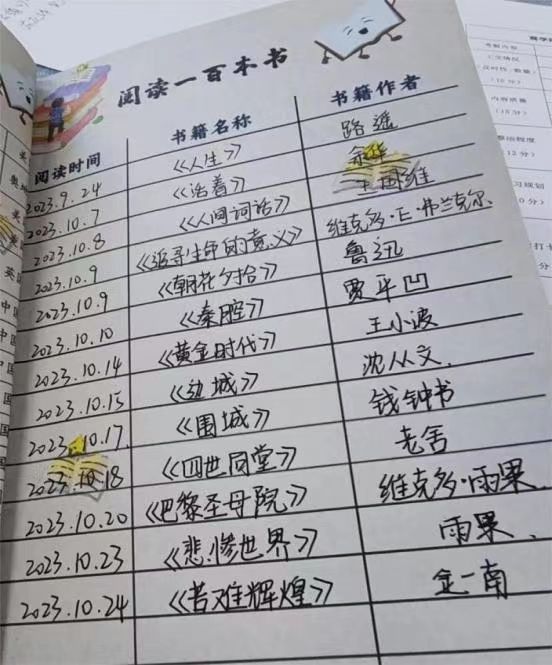 阅读一百本书
阅读时间 书籍名称 书籍作者
2023.9.24 《人生》 路遥
2023.10.7 《活着》 余华
2023.10.8 《人间词话》 王国维
2023.10.9 《追寻生命的意义》 维克多·E·弗兰克尔
2023.10.9 《朝花夕拾》 鲁迅
2023.10.10 《秦腔》 贾平凹
2023.10.14 《黄金时代》 王小波
2023.10.15 《边城》 沈从文.
2023.10.17. 《围城》 钱钟书
2023.10.18 《四世同堂》 老舍
2023.10.20 《巴黎圣母院》 维克多·雨果.
2023.10.23 《悲惨世界》 雨果.
2023.10.24 《苦难辉煌》 金一南